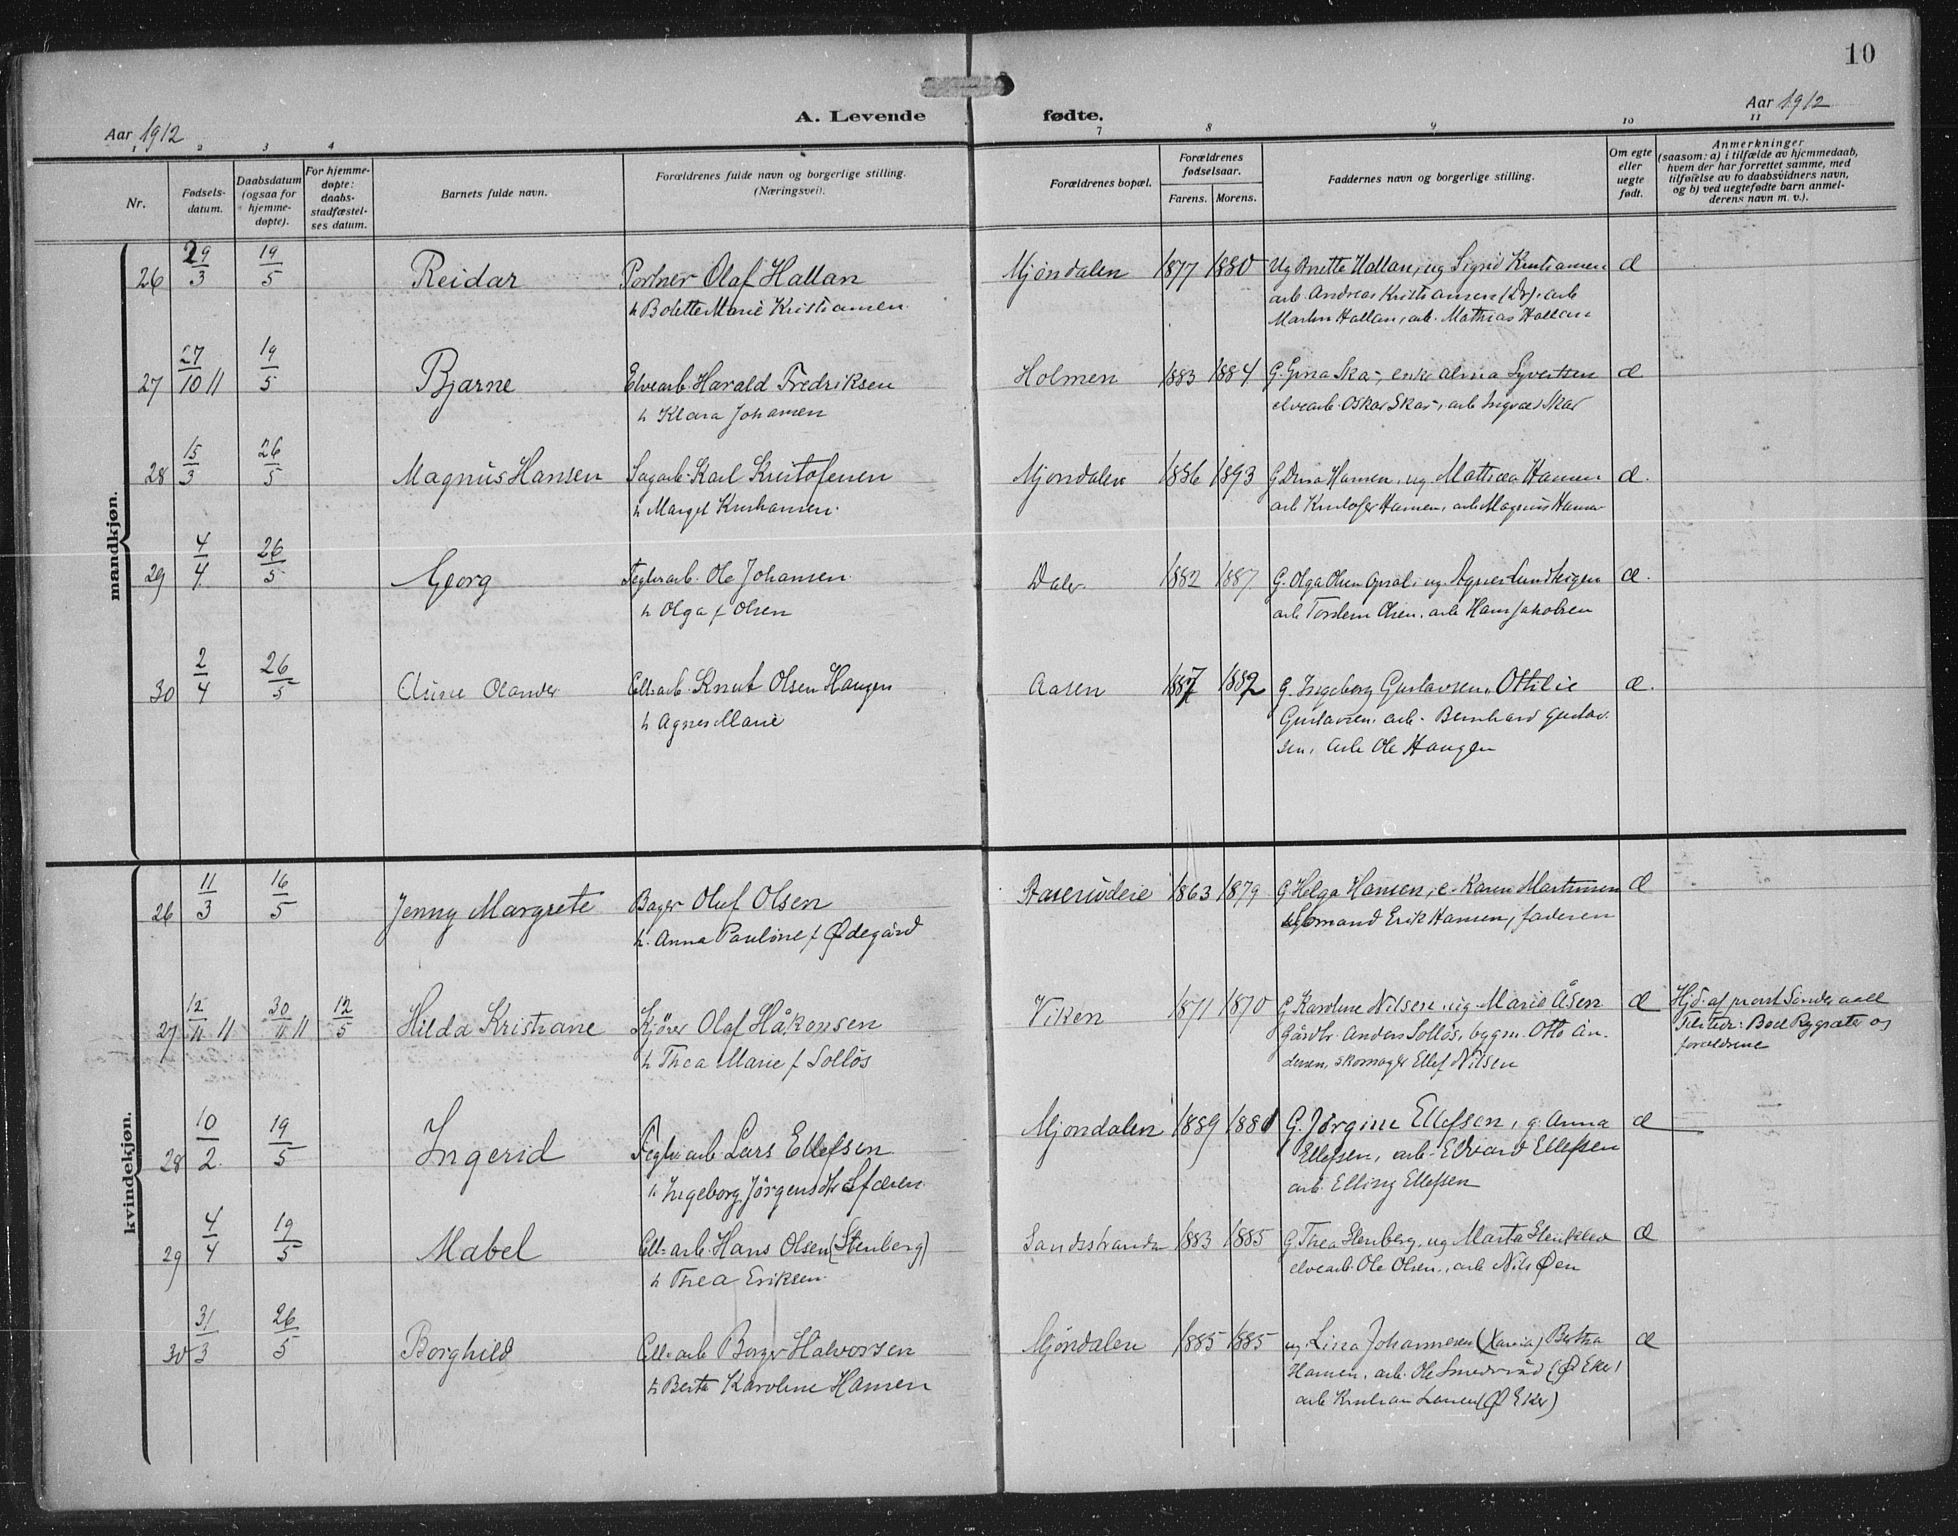 10
A. Levende fødte.
Aar 1912
Aar 1912
1 2 3 4 7 8 9 10 11
Nr.
Fødsels-
datum.
Daabsdatum
(ogsaa for
hjemme-
døpte).
For hjemme-
døpte:
daabs-
stadfæstel-
ses datum.
Barnets fulde navn.
Forældrenes fulde navn og borgerlige stilling.
(Næringsvei).
Forældrenes bopæl.
Forældrenes
fødselsaar.
Farens. Morens.
Faddernes navn og borgerlige stilling.
Om egte
eller
uegte
født.
Anmerkninger
(saasom: a) i tilfælde av hjemmedaab,
hvem der har forrettet samme, med
tilføielse av to daabsvidners navn,
og b) ved uegtefødte barn anmel-
derens navn m. v.).
mandkjøn.
26 29/3 19/5 Reidar Portner Olaf Hallan Mjøndalen 1877 1880 Ug Anette Hallan, ug Sigrid Kristiansen æ
h Bolette Marie Kristiansen arb. Andreas Kristiansen (Dr), arb
Martin Hallan, arb. Mathias Hallan
27 27/10 11 19/5 Bjarne Elvearb. Harald Fredriksen Holmen 1883 1884 G. Gina Skar, enke Alma Syvertsen æ
h Klara Johansen elvearb. Oskar Skar, arb Ingvald Skar
28 15/3 26/5 Magnus Hansen Sagarb. Karl Kristofersen Mjøndalen 1886 1893 G Dina Hansen, ug Mathea Hansen æ.
h Margit Kristiansen arb Kristofer Hansen, arb Magnus Hansen
29 4/4 26/5 Georg Teglv.arb. Ole Johansen Daler 1882 1887 G. Olga Olsen Opsal, ug. Agnes Lundteigen æ.
h Olga f Olsen arb Torstein Olsen, arb Hans Jakobsen
30 2/4 26/5 Olander Cell.arb. Knut Olsen Haugen Aasen 1887 1882 G. Ingeborg Gustavsen, Ottilie æ.
h Agnes Marie Gustavsen, arb. Bernhard Gustav-
sen, arb Ole Haugen
kvindekjøn.
26 11/3 16/5 Jenny Margrete Bager Oluf Olsen 1863 1879 G Helga Hansen, e. Karen Martinsen æ
h. Anna Pauline f Ødegård Erik Hansen, faderen
27 12/11 11 30/11 11 12/5 Hilda Kristiane Kjører Olaf Håkonsen Viken 1871 1870 G Karoline Nilsen, ug Marie Åsen æ Hjd. af prost Sinderaall
h Thea Marie f Solløs Gårdbr. Anders Solløs, bygm. Otto An- Tilsted: Boel Rygsæter og
dersen, skomager Ellef Nilsen forældrene
28 10/2 19/5 Ingerid Teglv.arb Lars Ellefsen Mjøndalen 1889 1880 G. Jørgine Ellefsen, g. Anna æ
h Ingeborg Ellefsen, arb. Edvard Ellefsen
arb. Elling Ellefsen
29 4/4 19/5 Mabel Cell.arb. Hans Olsen (Stenberg) Sandsstranda 1883 1885 G Thea Stenberg, ug Marta Stenklev æ
h Thea Eriksen elvearb Ole Olsen, arb Nils Øen
30 31/3 26/5 Borghild Cell.arb Borger Halvorsen Mjøndalen 1885 1885 ug. Lina Johannesen Bertha æ
h Berta Karoline Hansen Hansen, arb. Ole Smedsrud (Ø Eker)
arb Kristian Larsen (Ø Eker)